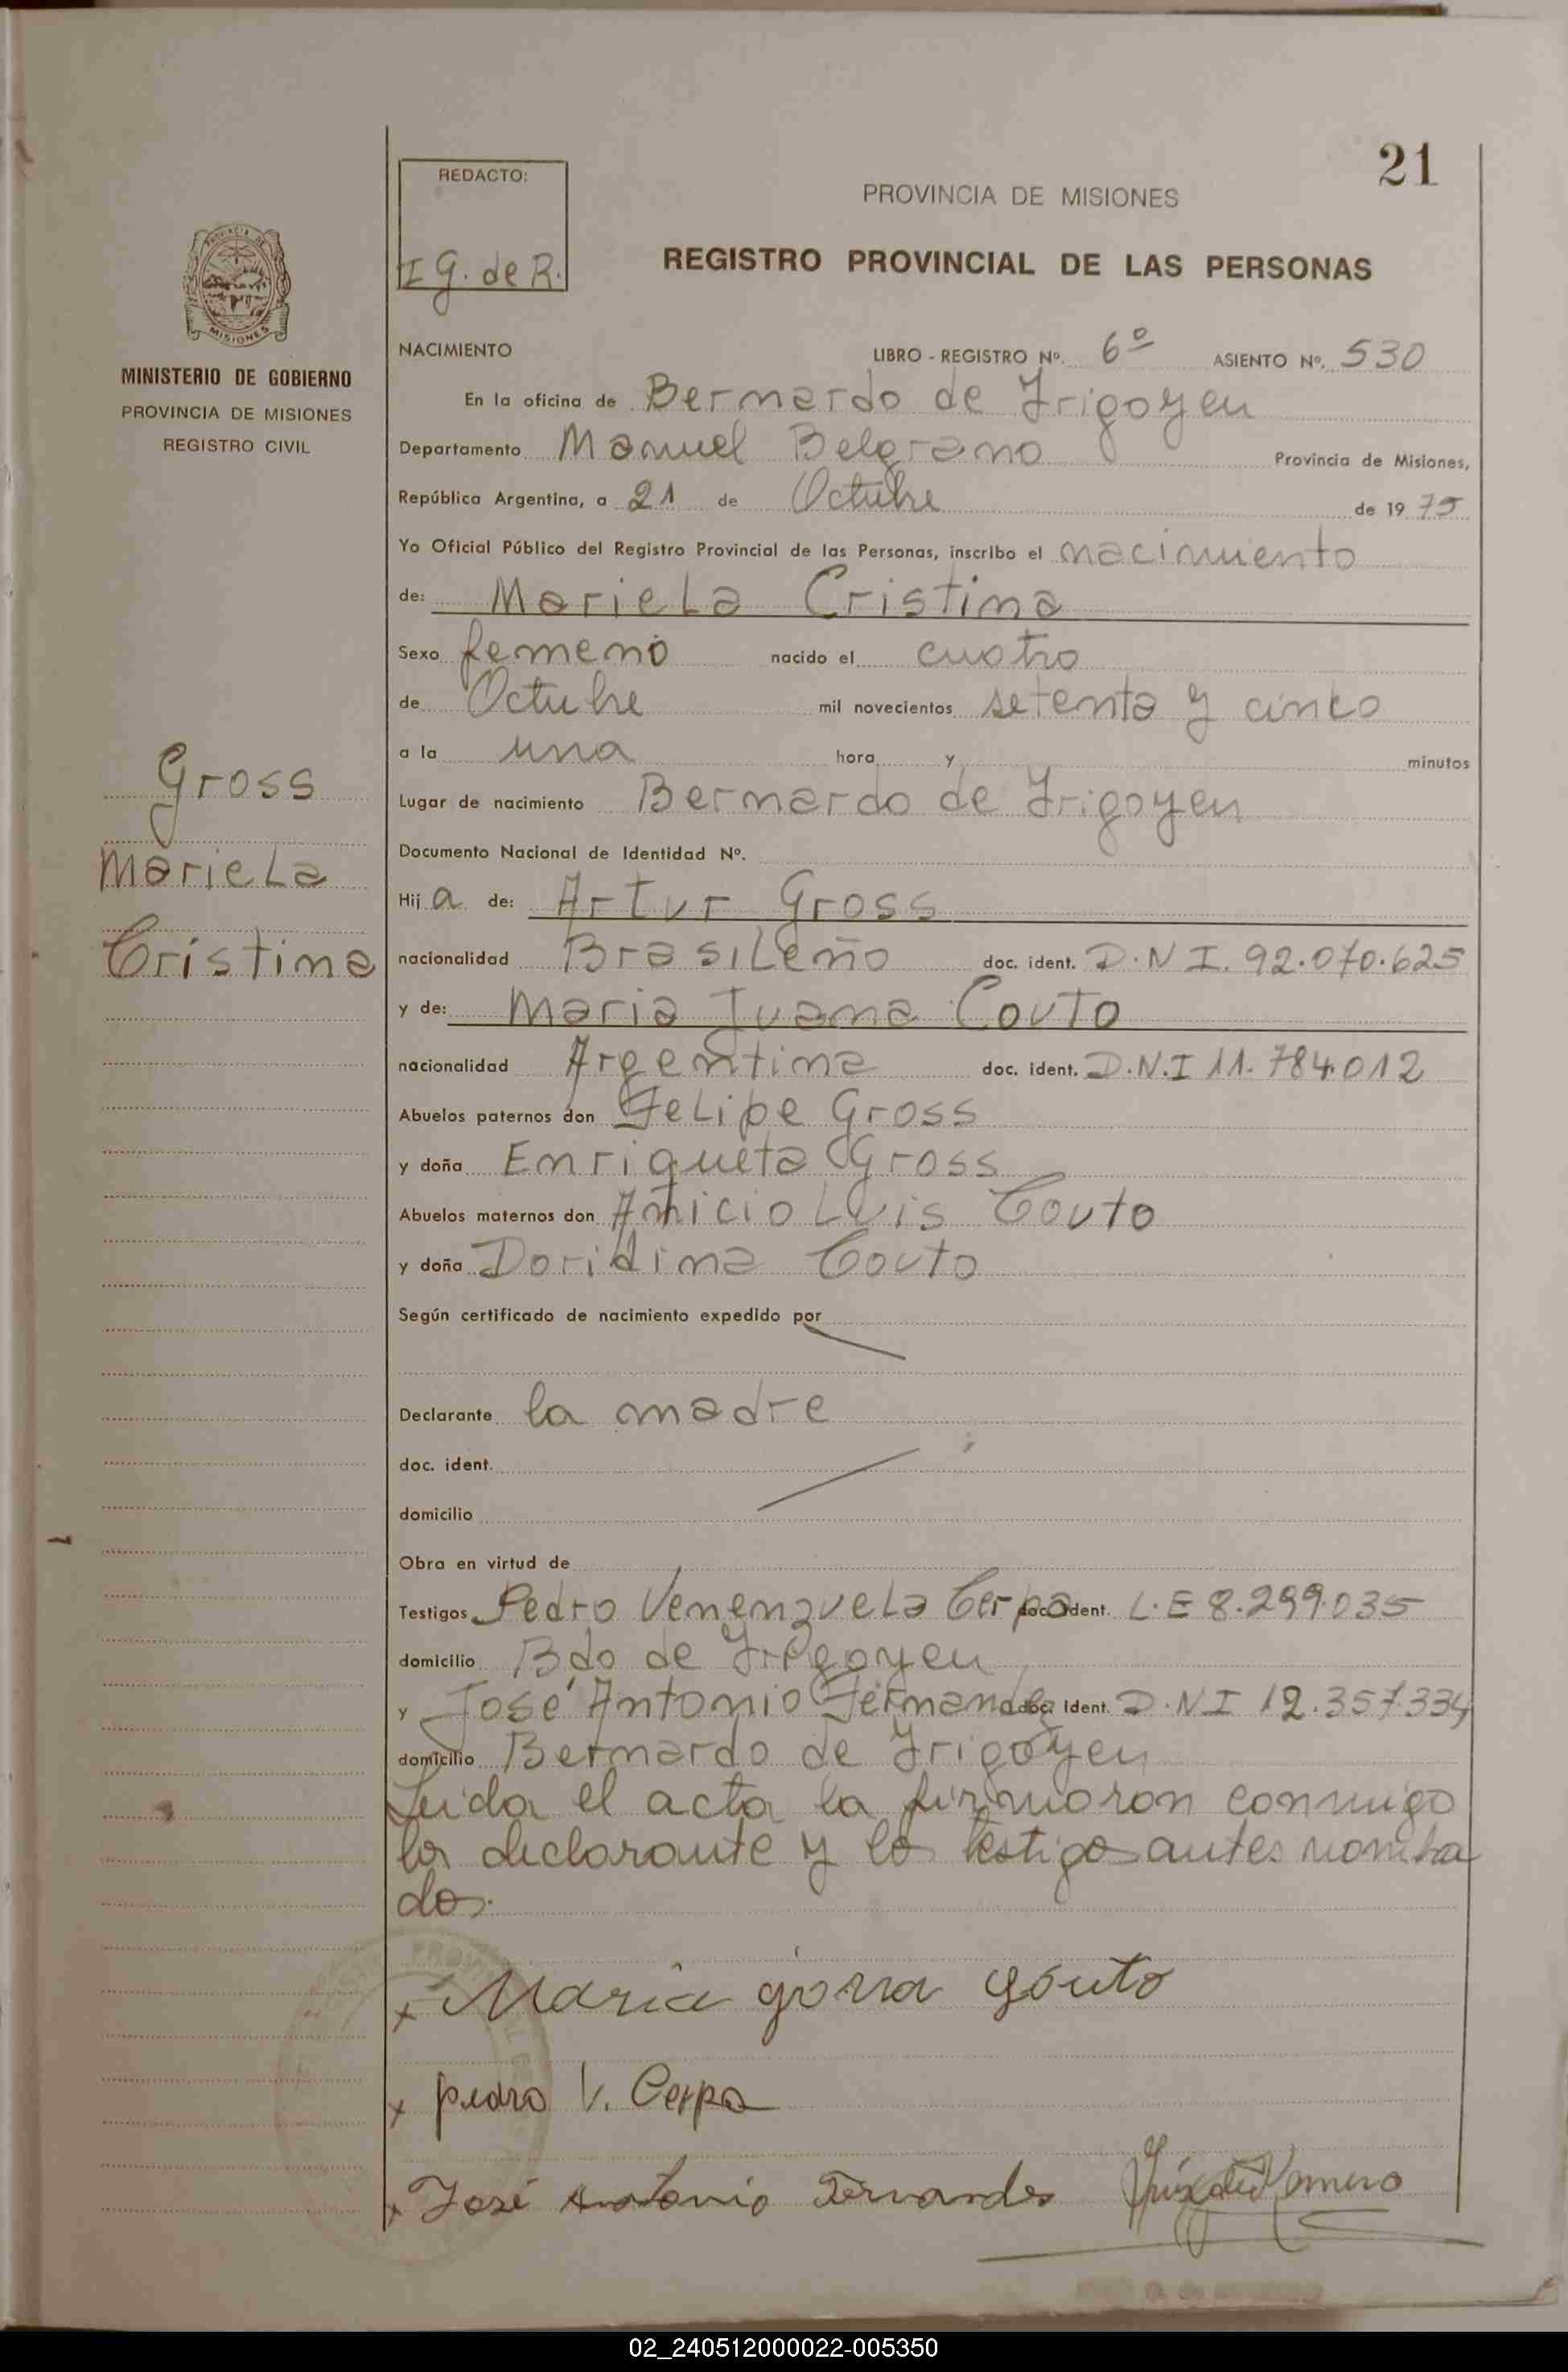 21
REDACTO:
I G. de R.
PROVINCIA DE MISIONES
REGISTRO PROVINCIAL DE LAS PERSONAS
MISIONES
MINISTERIO DE GOBIERNO
PROVINCIA DE MISIONES
REGISTRO CIVIL
Gross
Mariela
Cristina
NACIMIENTO LIBRO - REGISTRO Nº. 6º ASIENTO Nº. 530
En la oficina de Bernardo de Irigoyen
Departamento Manuel Belgrano Provincia de Misiones,
República Argentina, a 21 de Octubre de 1975
Yo Oficial Público del Registro Provincial de las Personas, inscribo el nacimiento
de: Mariela Cristina
Sexo femeno nacido el cuatro
de Octubre mil novecientos setenta y cinco
a la una hora y minutos
Lugar de nacimiento Bernardo de Irigoyen
Documento Nacional de Identidad Nº.
Hija de: Artur Gross
nacionalidad Brasileño doc. ident. D.N I. 92.070.625
y de: Maria Juana Couto
nacionalidad Argentina doc. ident. D.N.I 11.784.012
Abuelos paternos don Felipe Gross
y doña Enriqueta Gross
Abuelos maternos don Anicio Luis Couto
y doña Doridina Couto
Según certificado de nacimiento expedido por
Declarante la madre
doc. ident.
domicilio
Obra en virtud de
Testigos Pedro Venenzuela Cerpa doc. ident. L.E 8.299.035
domicilio Bdo de Irigoyen
y José Antonio Fernandez doc. ident. D.N I 12.357.334
domicilio Bernardo de Irigoyen
Leida el acta la firmaron conmigo
la declarante y los testigos antes nombra
dos.
x Maria gonna Gouto
x pedro V. Cerpa
x José Antonio Fernandes
02_240512000022-005350